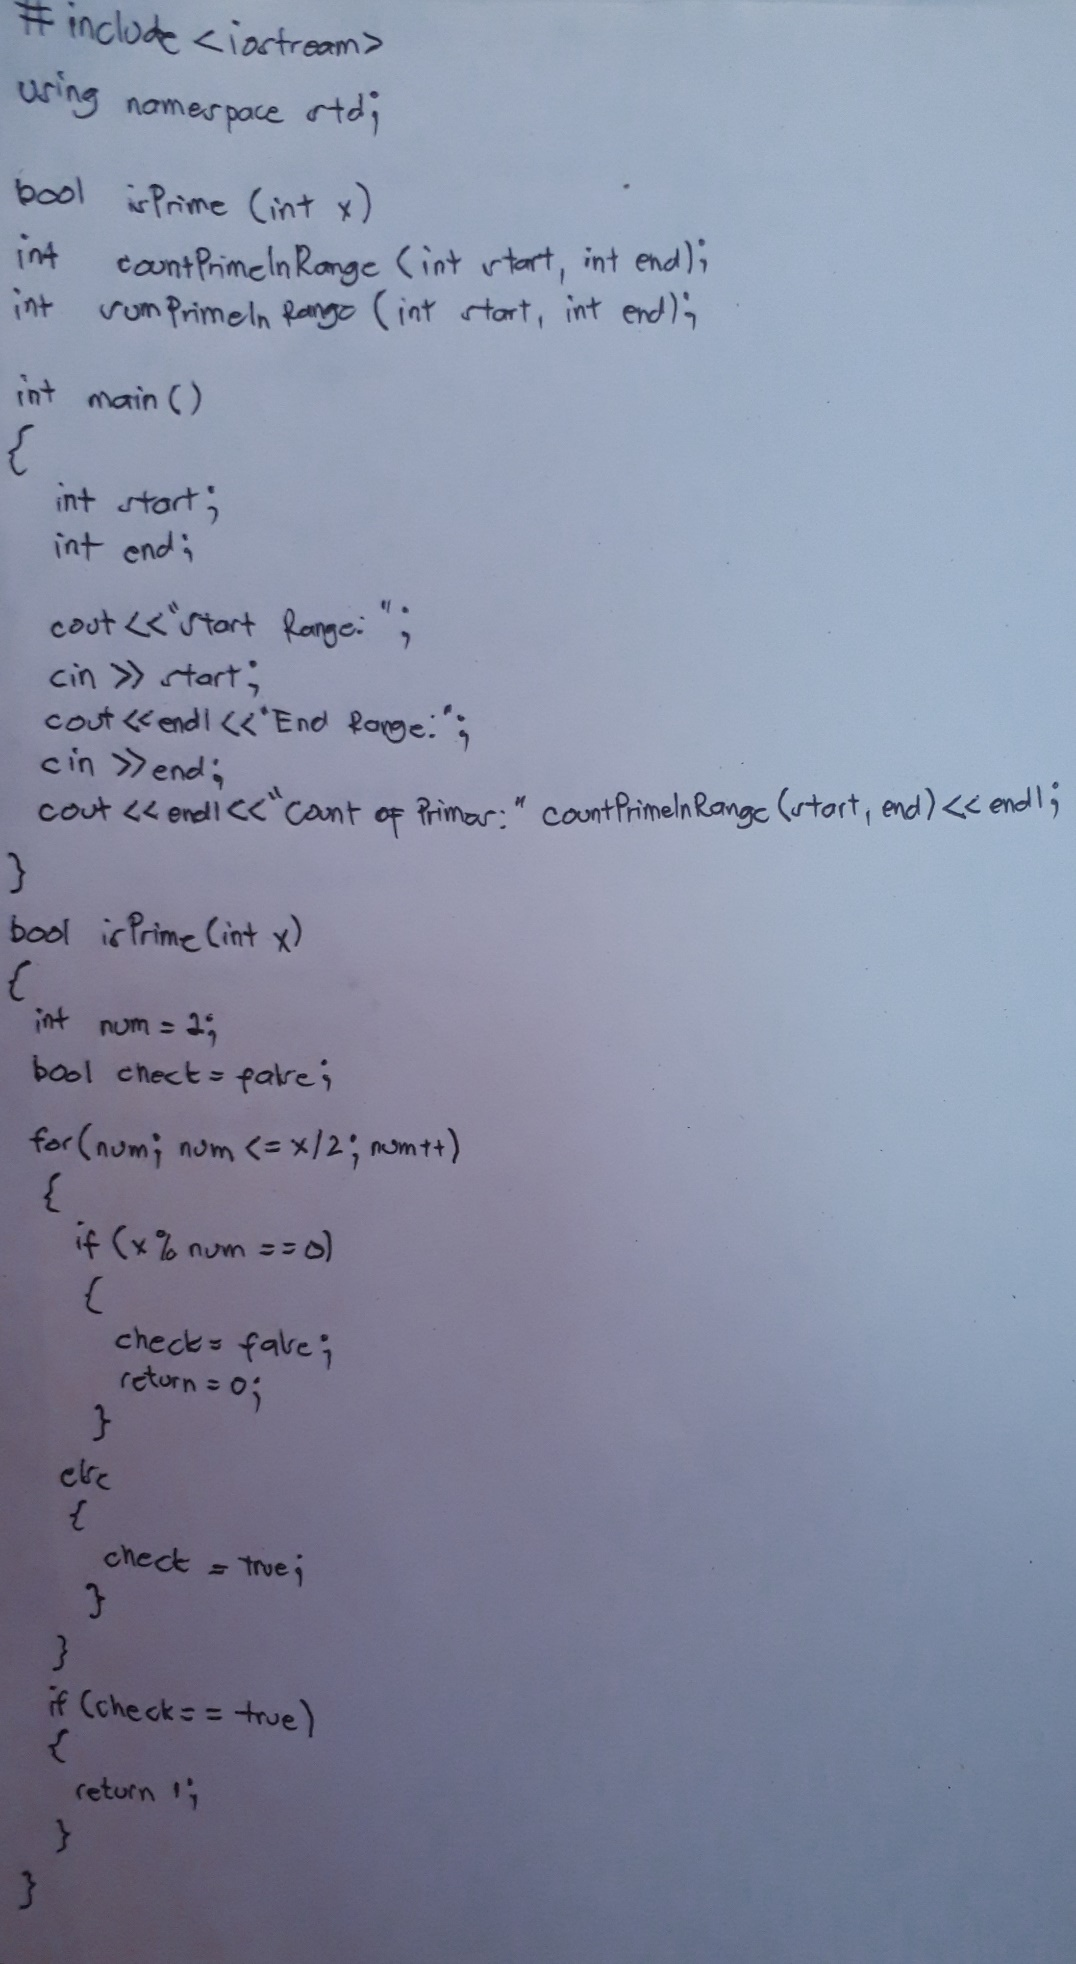 #include <iostream>
using namespace std;
bool isPrime (int x)
int countPrimeInRange (int start, int end);
int sumPrimeIn Range (int start, int end);
int main ()
{
int start;
int end;
cout <<"Start Range: ";
cin >> start;
cout <<endl <<"End Range:";
cin >>end;
cout << endl<<"Count of Primes:" countPrimeInRange (start, end) << endl;
}
bool isPrime (int x)
{
int num = 2;
bool check = false;
for(num; num <= x/2; num++)
{
if (x% num ==0)
{
check= false;
return = 0;
}
else
{
check = true;
}
}
if (check== true)
{
return 1;
}
}